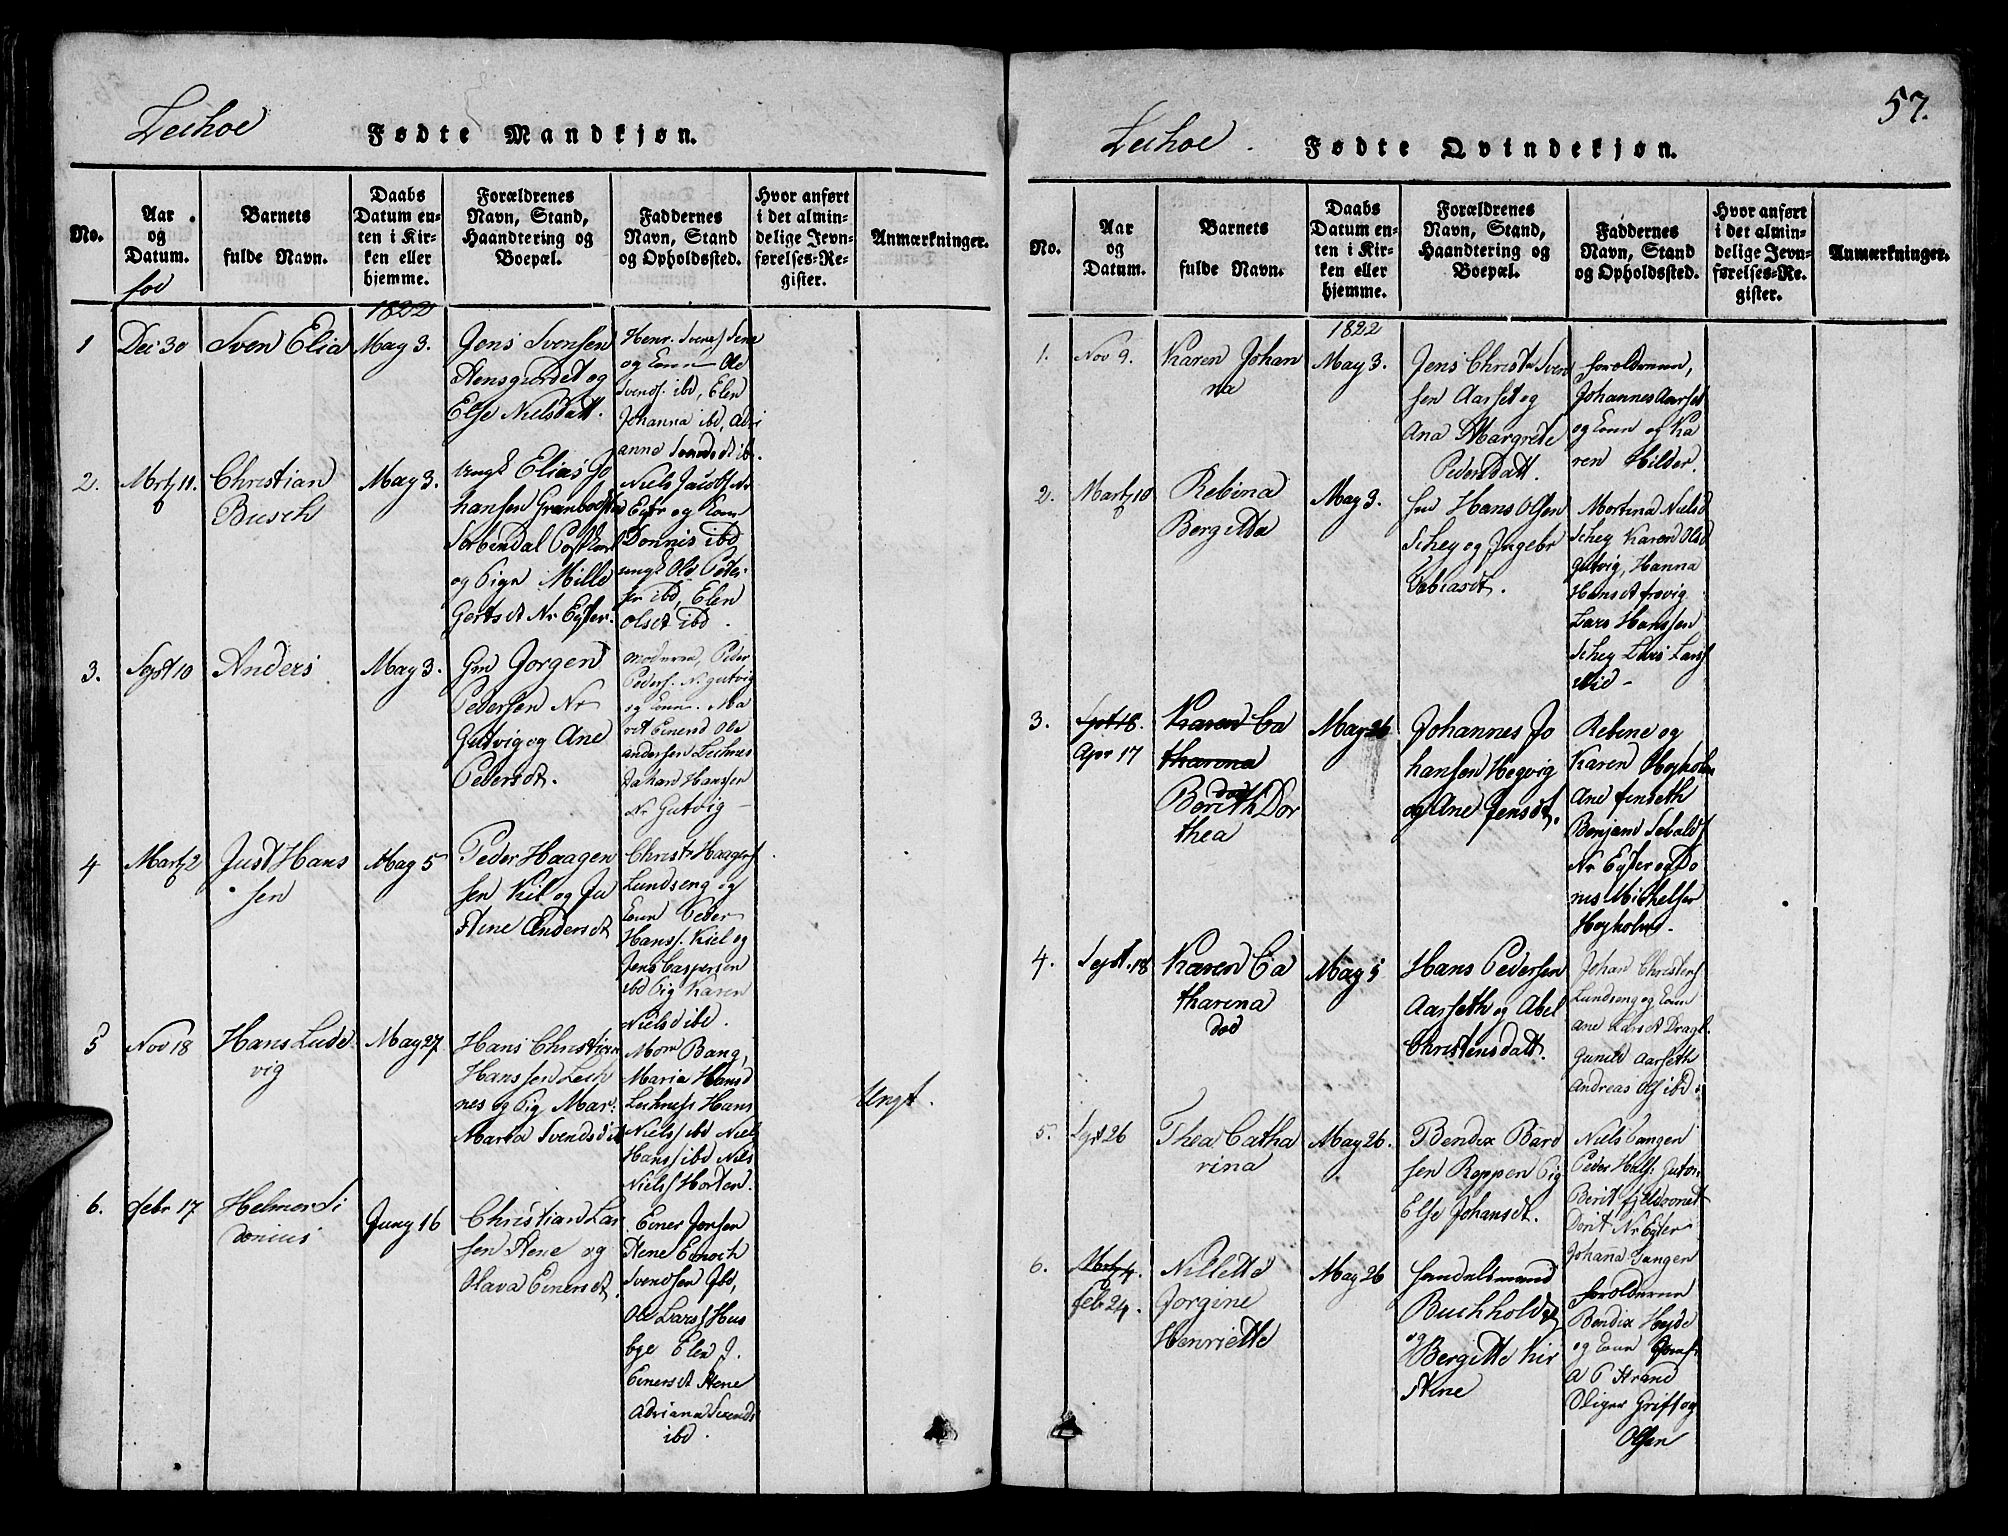 Leehoe
Fødte Mandkjøn.
No.
Aar og Datum.
Barnets fulde Navn.
Daabs Datum enten i Kirken eller hjemme.
Forældrenes Navn, Stand, Haandtering og Boepæl.
Faddernes Navn, Stand og Opholdssted.
Hvor anført i det almindelige Jevnførelses-Register.
Anmærkninger.
1822
1
Dec 30
Sven Elia
May 3.
Jens Svensen
Stensgurdet og
Else Nielsdatt.
Henr. Svens. Stene
og Konn Ole
Svends. ibd, Elen
Johanna ibd, Adri
anne Svendsdt ibd.
2.
Martz 11.
Christian
Busch
May 3.
Ungk Elias Jo
hansen
og Pige Mille
Gertsdt Nr Eyter.
Niels Jacobs. Nr
Eyter og Konn
Donnis ibd
ungk Ole Peder
sen ibd, Elen
Olsdt ibd.
3.
Sept 10
Anders
May 3.
Gm Jorgen
Pedersen Nr
Gutvig og Ane
Pedersdt.
Moderen, Peder
Peders. N. Gutvig
og Konn. Ma
rit Einersd Ole
Andersen Leehnes
Zakari Hanssen
Nr Gutvig
4
Martz 2
Just Hans
sen
May 5
Peder Haagen
sen Kiil og Ju
stine Andersdt
Christ: Haagens
Lundseng og
Konn Peder
Hanss. Kiel og
Jens Caspersen
ibd Pig Karen
Nielsd ibd.
5
Nov 18
Hans Lude
vig
May 27
Hans Christian
Hanssen Leeh
nes og Pig Mar:
Marta Svendsdt
Mom Bang,
Maria Hansd
Leeknes Hans
Niels ibd Niels
Hanss ibd Niels
Niels Horten.
Ungt.
6.
Febr 17
Helmer Si
donius
Juny 16
Christian Lar
sen Stene og
Olava Einersdt.
Einer Jorsen
Stene Enoch
Svendsen Ibd,
Ole Larss Hus
bye Elen J.
Einersdt Stene
Adriana Svends
ibd.
57.
Leehoe.
Fødte Qvindekjøn.
No.
Aar og Datum.
Barnets fulde Navn.
Daabs Datum enten i Kirken eller hjemme.
Forældrenes Navn, Stand, Haandtering og Boepæl.
Faddernes Navn, Stand og Opholdssted.
Hvor anført i det almindelige Jevnførelses-Register.
Anmærkninger.
1822
1.
Nov 9.
Karen Johan
na
May 3.
Jens Christ Sven
sen Aarset og
Ana Margrete
Pedersdatt.
Foroldrenen,
Johannes Aarset
og Konn og Ka
ren Hilder.
2.
Martz 10
Rebina
Bergitta
May 3.
Hans Olsen
Schey og Ingebr
Tobiasdt.
Mortina Nielsd
Schey Karen Olsd
Gutvig, Hanna
Hansdt Frovig
Lars Hanssen
Schey Lars Larss
Wid
3.
Sept 18.
Apr 17
Karen Ca
tharina
død
Berith Dor
thea
May 26
Johannes Jo
hansen Hegvig
og Ane Jensdt.
Rebine og
Karen Høyholm
Ane Finseth
Benjam Sebalds
Nr Eyter og Do
nis Michelsen
Høyholmd.
4.
Sept. 18
Karen Ca
tharina
død
May 5
Hans Pedersen
Aarseth og Abel
Christensdatt.
Johan Christens
Lundseng og Konn
Ane Larsdt Dragl.
Gunild Aarseth
Andreas Ols ibd.
5.
Sept 26
Thea Catha
rina
May 26.
Bendix Bard
sen Reppen Pig
Else Johansdt.
Niels Langen
Berit
Dorit Nr Eyter
Johana Langen
6.
Martz 4.
Feb 24.
Nillette
Jorgine
Henriette
May 26
Handelsmand
Buchholdt
og Bergitte Kir
stine
Foroldrene
Bendix Heyde
og Konn Jomf.
A P Strand
Oliger Grift og
Olsen